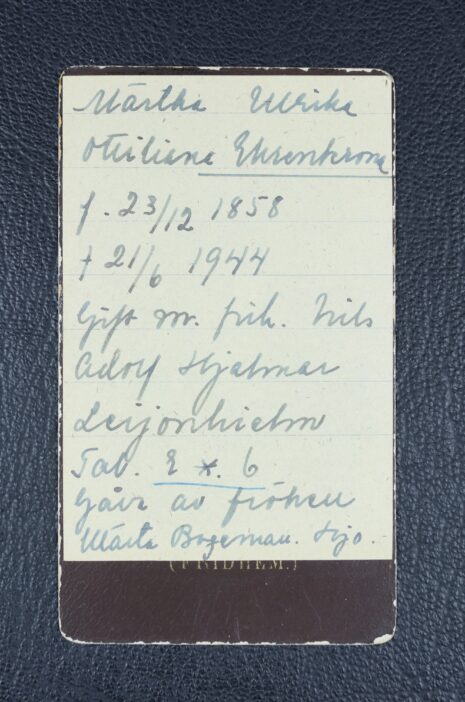 Märtha Ulrika
Ottiliana Ehrenkrona
f. 23/12 1858
† 21/6 1944
Gift m. frih. Nils
Adolf Hjalmar
Leijonhielm
Tab. E *. 6
Gåva av fröken
Märta Bogeman. Hjo.
(FRIDHEM.)